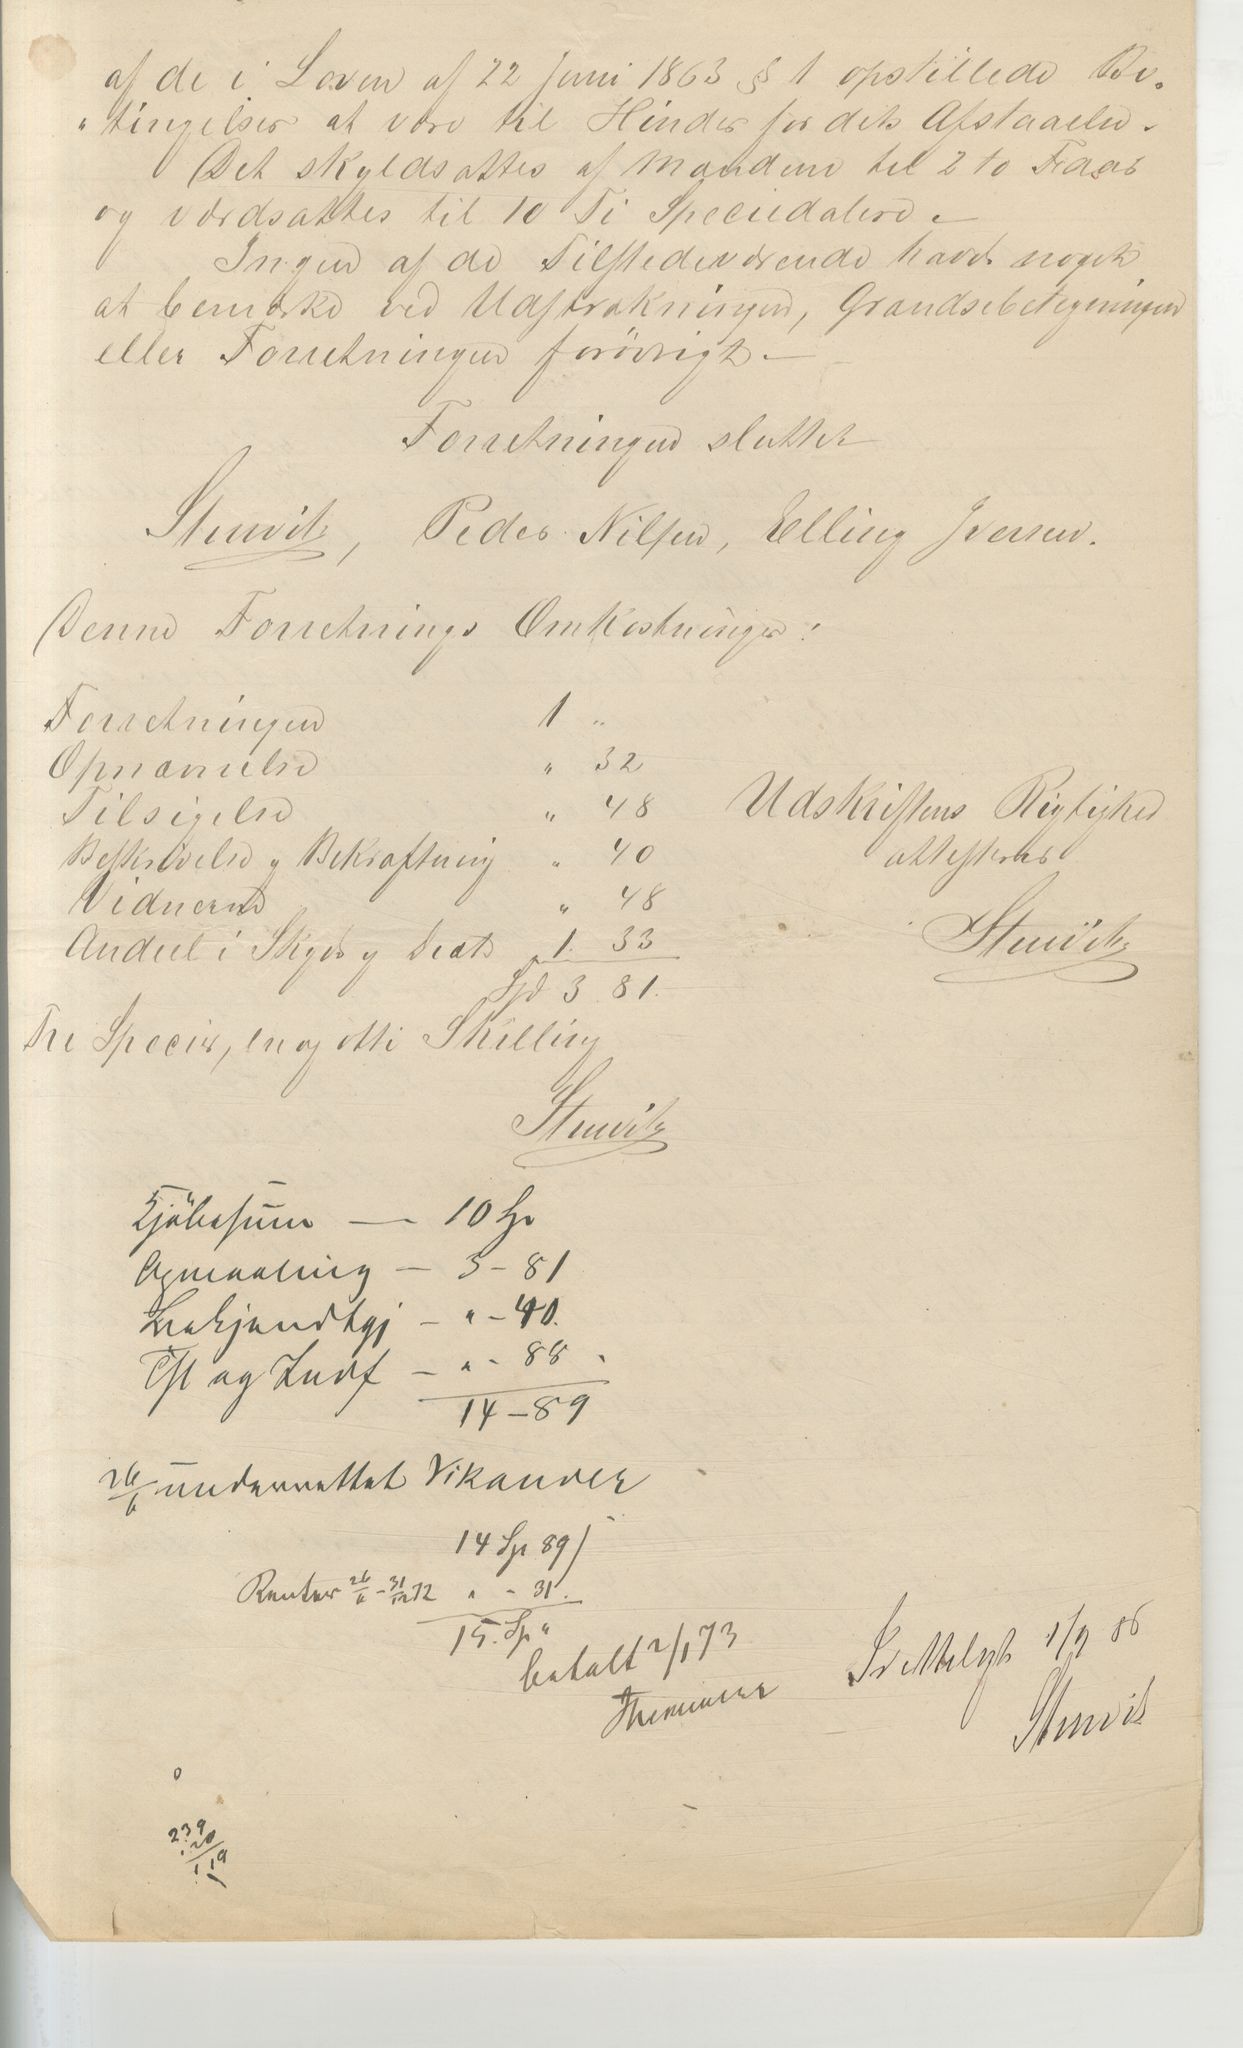 af de i Loven af 22 Juni 1863 § 1 opstillede Be-
"tingelser at være til Hinder for dets Afstaaelse.
Det skyldsattes af Mændene til 2 to Skind
og værdsattes til 10 Ti Speciedalere.
Ingen af de Tilstedeværende havde noget
at bemærke ved Udstrækningen, Grændsebetegningen
eller Forretningen forövrigt.
Forretningen sluttet
Stuwitz, Peder Nilsen, Elling Iversen.
Denne Forretnings Omkostninger:
Forretningen 1 "
Opnævnelse " 32
Tilsigelse " 48
Beskrivelse og Bekræftning " 40
Vidnerne " 48
Andeel i Skyds og Diæt 1. 33
Spd 3 81.
Udskriftens Rigtighed
attesteres
Stuwitz
Tre Species, en og otti Skilling
Stuwitz
Kjöbesum — 10 Sp
Opmaaling — 3 - 81
Bekjendtgj - " - 40.
Tgl og Indf - " - 88
14 - 89
26/6 underrettet Vikander
14 Sp 89
Renter 26/6 - 31/12 72 " - 31.
15. Sp "
betalt 2/1 73
Slettelyst 1/9 86
Stuwitz
239
120
119